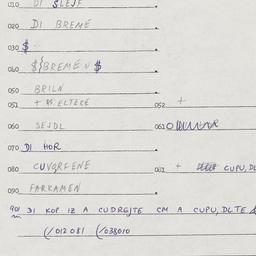 010 DI SLEJF
020 DI BREMÉ
030 $
040 $/BREMÉN $
050 BRILN
051 + ELTECÉ 052 +
060 SEJDL 061 O
070 DI HOR
080 CUVQRFENE 081 + CUPU, DL
090 FARKAMEN
901 DI KOP IZ A CUDREJTE CM A CUPU, DLTE
(/012 081 (/038010